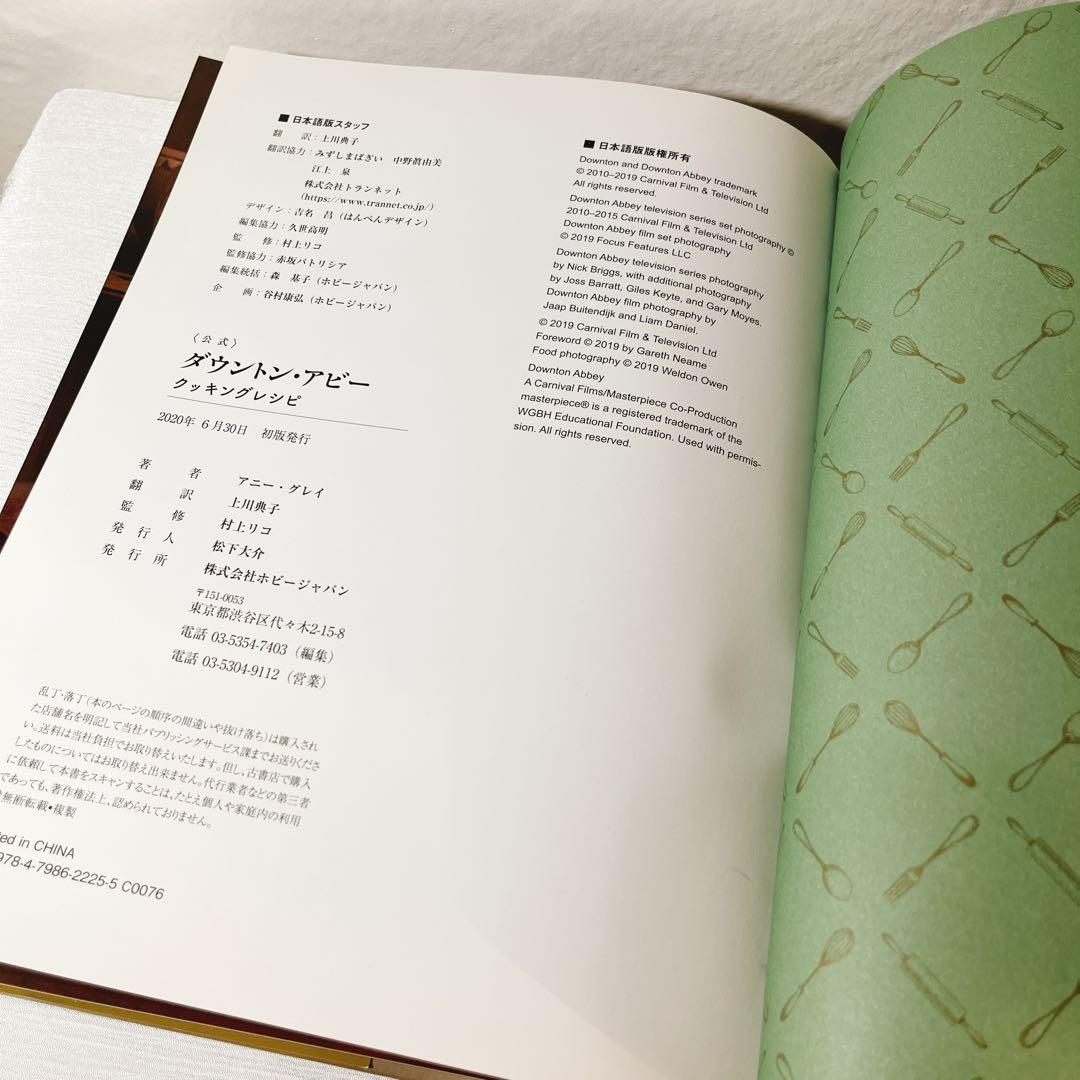 ■ 日本語版スタッフ
翻　訳：上川典子
翻訳協力：みずしまぱぎい　中野眞由美
江上　泉
株式会社トランネット
（https://www.trannet.co.jp/）
デザイン：吉名　昌（はんぺんデザイン）
編集協力：久世高明
監　修：村上リコ
監修協力：赤坂パトリシア
編集統括：森　基子（ホビージャパン）
企　画：谷村康弘（ホビージャパン）
〈公式〉
ダウントン・アビー
クッキングレシピ
2020年 6月30日　初版発行
著　者　アニー・グレイ
翻　訳　上川典子
監　修　村上リコ
発行人　松下大介
発行所　株式会社ホビージャパン
〒151-0053
東京都渋谷区代々木2-15-8
電話 03-5354-7403（編集）
電話 03-5304-9112（営業）
乱丁・落丁（本のページの順序の間違いや抜け落ち）は購入され
た店舗名を明記して当社パブリッシングサービス課までお送りくださ
い。送料は当社負担でお取り替えいたします。但し、古書店で購入
したものについてはお取り替え出来ません。代行業者などの第三者
に依頼して本書をスキャンすることは、たとえ個人や家庭内の利用
であっても、著作権法上、認められておりません。
無断転載・複製
ed in CHINA
978-4-7986-2225-5 C0076
■ 日本語版版権所有
Downton and Downton Abbey trademark
© 2010–2019 Carnival Film & Television Ltd
All rights reserved.
Downton Abbey television series set photography ©
2010–2015 Carnival Film & Television Ltd
Downton Abbey film set photography
© 2019 Focus Features LLC
Downton Abbey television series photography
by Nick Briggs, with additional photography
by Joss Barratt, Giles Keyte, and Gary Moyes.
Downton Abbey film photography by
Jaap Buitendijk and Liam Daniel.
© 2019 Carnival Film & Television Ltd
Foreword © 2019 by Gareth Neame
Food photography © 2019 Weldon Owen
Downton Abbey
A Carnival Films/Masterpiece Co-Production
masterpiece® is a registered trademark of the
WGBH Educational Foundation. Used with permis-
sion. All rights reserved.